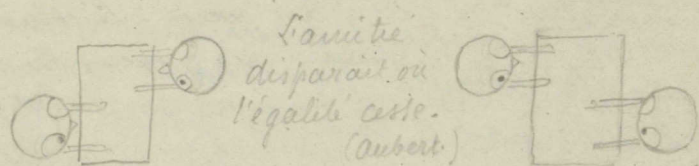 L'amitié
disparait où
l'égalité cesse.
(Aubert.)